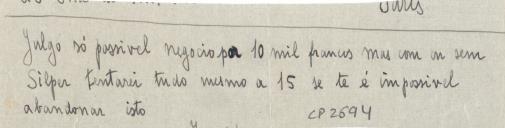 Paris
Julgo só possivel negocio por 10 mil francos mas com ou sem
Silper tentarei tudo mesmo a 15 se te é impossivel
abandonar isto
CP2694